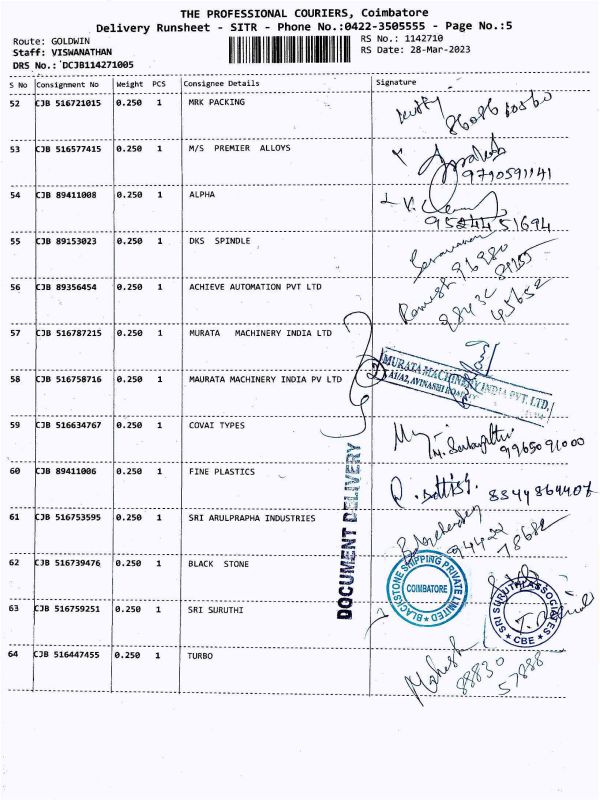 THE PROFESSIONAL COURIERS, Coimbatore
Delivery Runsheet - SITR - Phone No.:0422-3505555 - Page No.:5
Route: GOLDWIN RS No.: 1142710
Staff: VISWANATHAN RS Date: 28-Mar-2023
DRS No.: DCJB114271005
S No Consignment No Weight PCS Consignee Details Signature
52 CJB 516721015 0.250 1 MRK PACKING
53 CJB 516577415 0.250 1 M/S PREMIER ALLOYS
9790591141
54 CJB 89411008 0.250 1 ALPHA
55 CJB 89153023 0.250 1 DKS SPINDLE
Saravanan 96980
56 CJB 89356454 0.250 1 ACHIEVE AUTOMATION PVT LTD
Ramesh 98432 45652
57 CJB 516787215 0.250 1 MURATA MACHINERY INDIA LTD
58 CJB 516758716 0.250 1 MAURATA MACHINERY INDIA PV LTD
2
MURATA MACHINERY INDIA PVT. LTD.
A1/A2, AVINASHI ROAD
59 CJB 516634767 0.250 1 COVAI TYPES
9965091000
60 CJB 89411006 0.250 1 FINE PLASTICS
8344864407
DOCUMENT DELIVERY
61 CJB 516753595 0.250 1 SRI ARULPRAPHA INDUSTRIES
94422 78682
62 CJB 516739476 0.250 1 BLACK STONE
BLACKSTONE SHIPPING PRIVATE LIMITED
COIMBATORE
63 CJB 516759251 0.250 1 SRI SURUTHI
SRI SURUTHI ASSOCIATES
CBE
64 CJB 516447455 0.250 1 TURBO
Mahesh 88830 57888